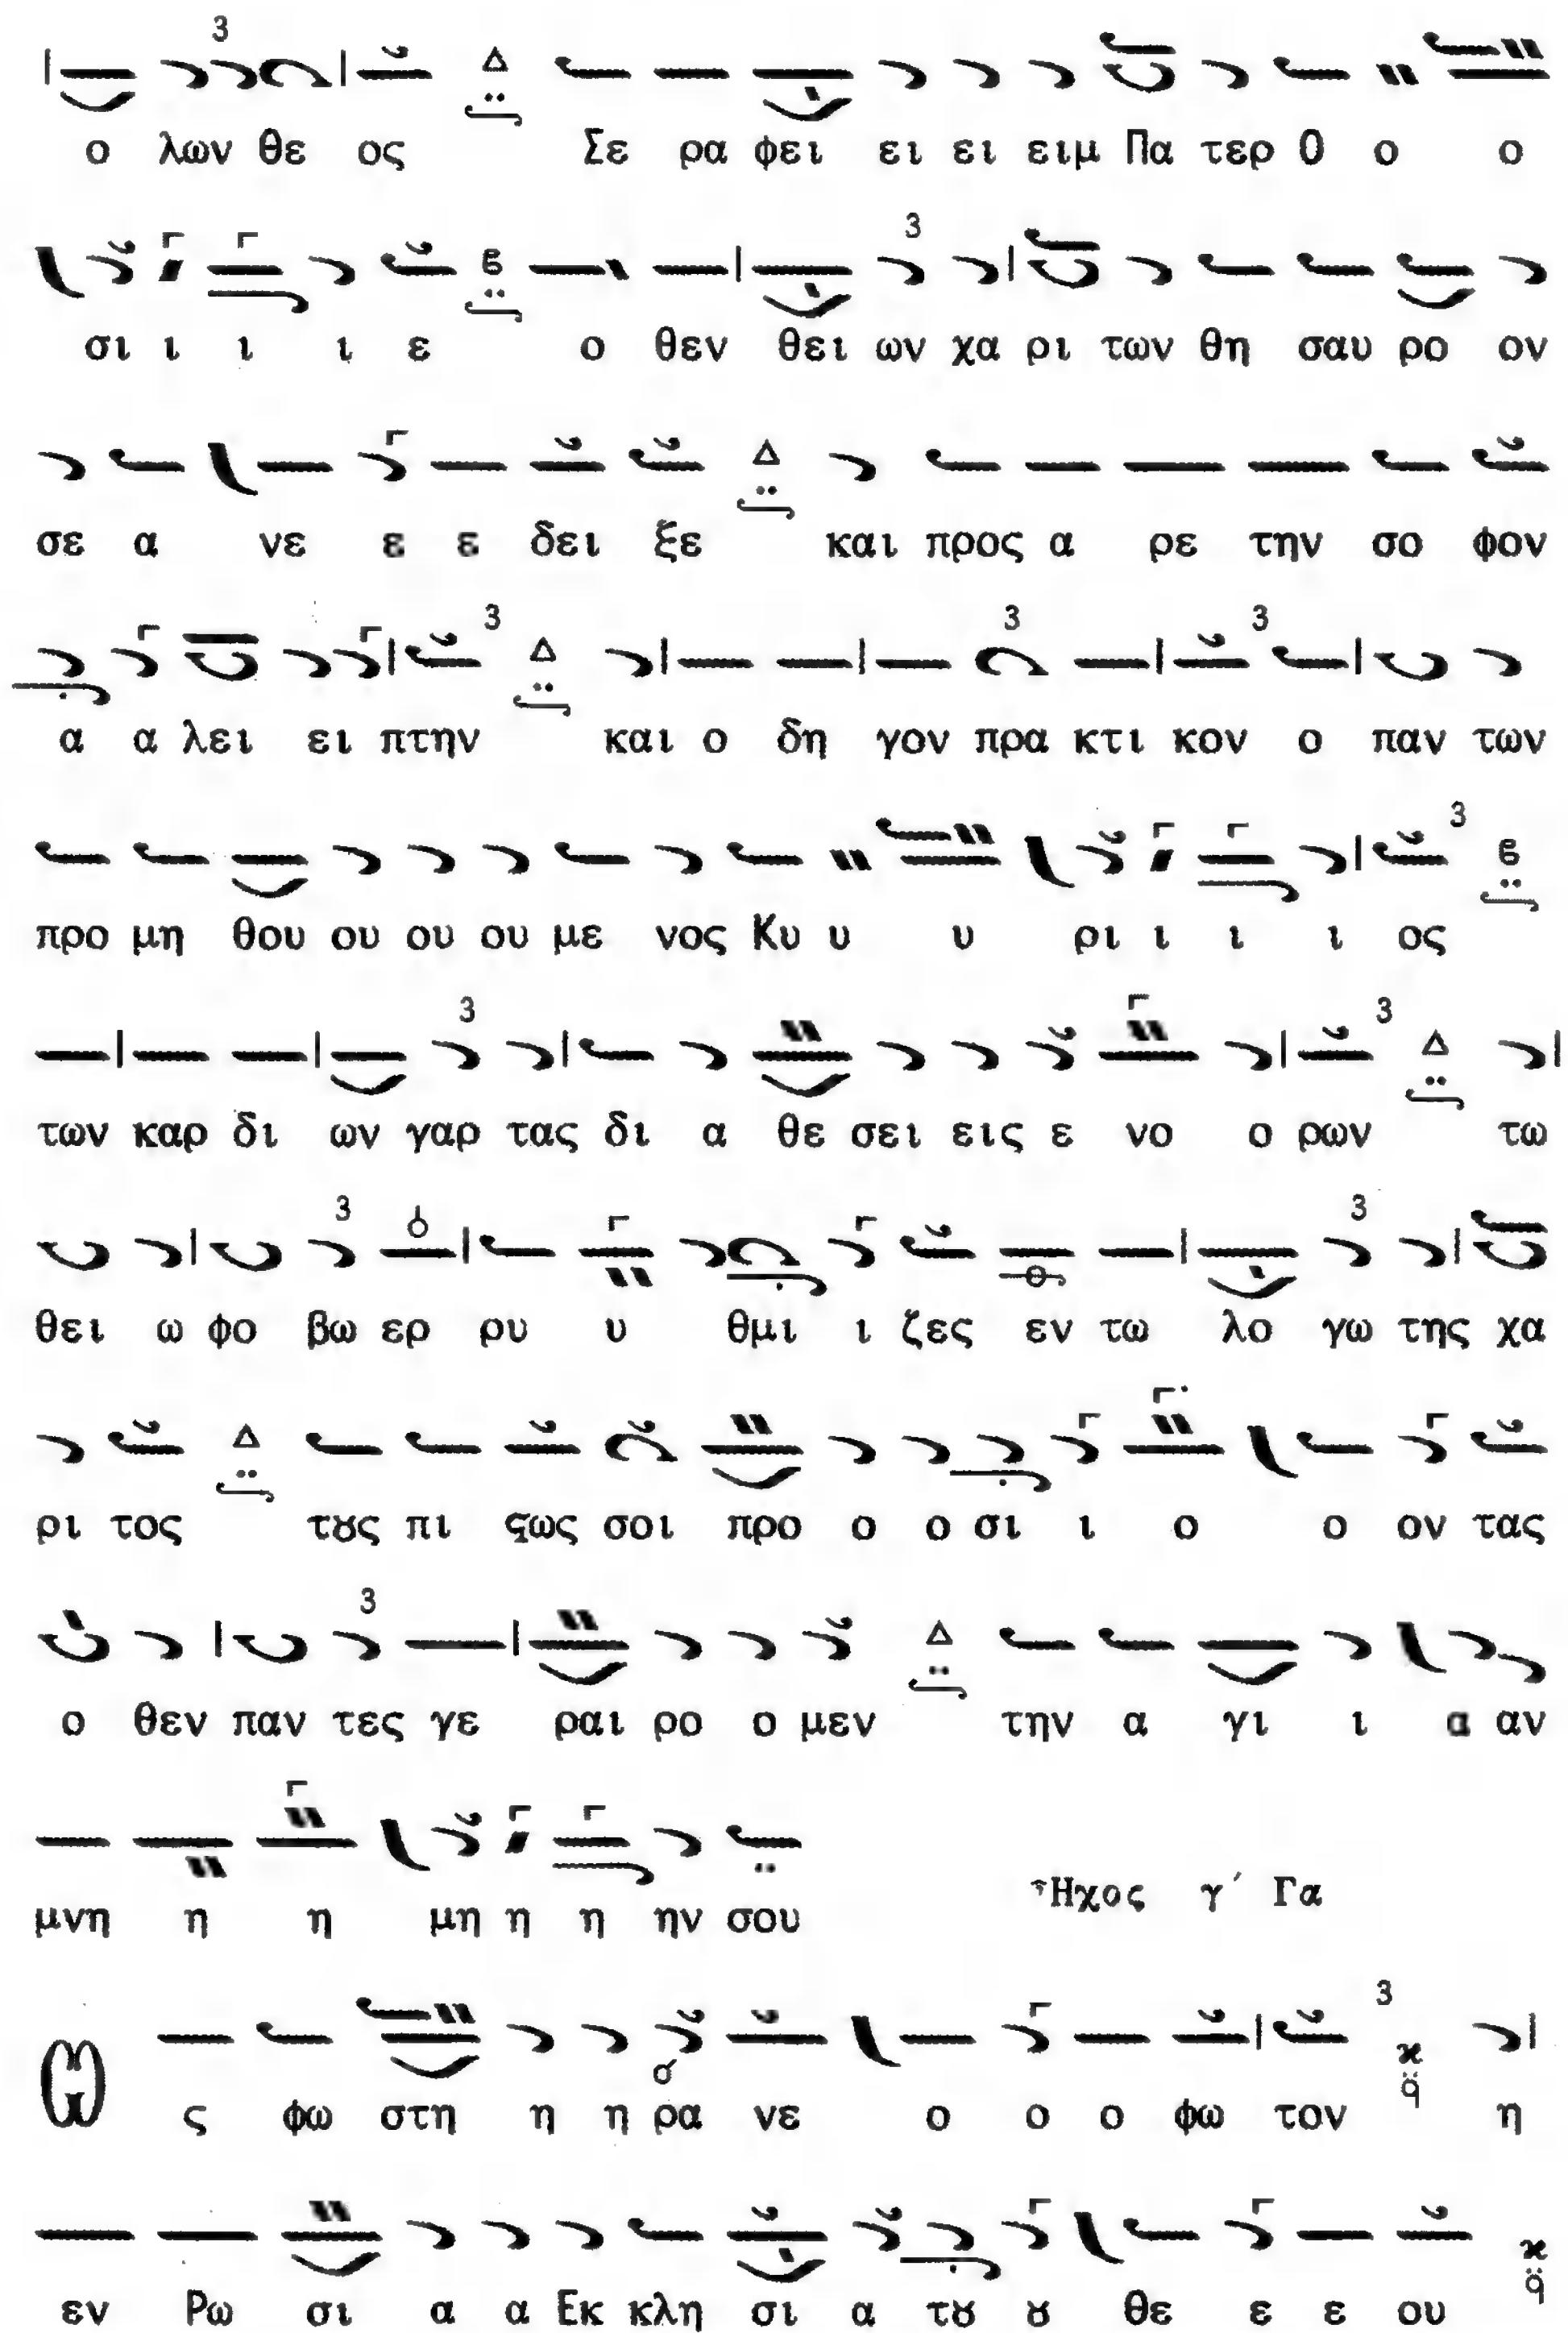 ο λων θε ος Σε ρα φει ει ει ειμ Πα τερ Ο ο ο
σι ι ι ι ε ο θεν θει ων χα ρι των θη σαυ ρο ον
σε α νε ε ε δει ξε και προς α ρε την σο φον
α α λει ει πτην και ο δη γον πρα κτι κον ο παν των
προ μη θου ου ου ου με νος Κυ υ υ ρι ι ι ι ος
των καρ δι ων γαρ τας δι α θε σει εις ε νο ο ρων τω
θει ω φο βω ερ ρυ υ θμι ι ζες εν τω λο γω της χα
ρι τος τȣς πι ϛως σοι προ ο ο σι ι ο ο ον τας
ο θεν παν τες γε ραι ρο ο μεν την α γι ι α αν
μνη η η μη η η ην σου Ἦχος γ΄ Γα
Ως φω στη η η ρα νε ο ο ο φω τον η
εν Ρω σι α α Εκ κλη σι α τȣ ȣ θε ε ε ου